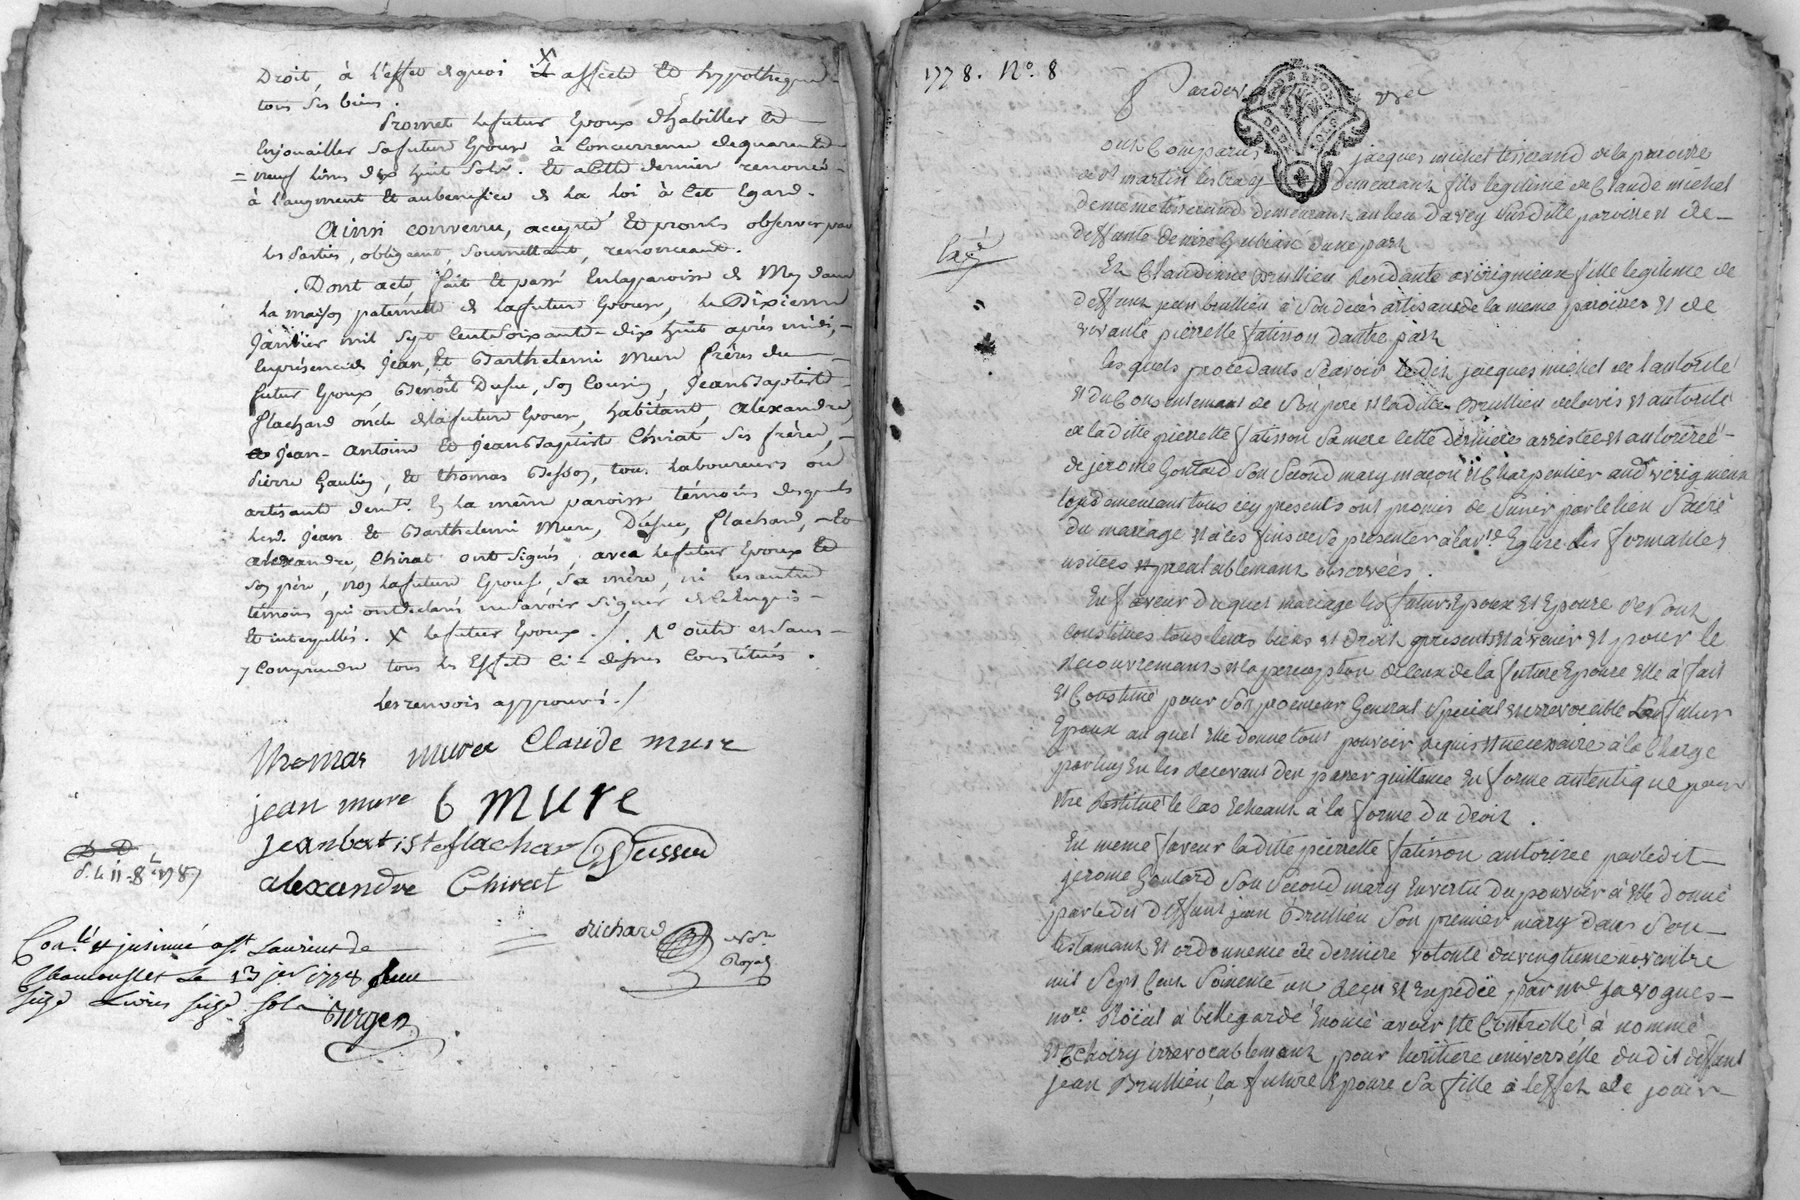 Droit, à l'effet de quoi X a affecté Et hypothequé
tous ses biens.
Promet le futur Epoux d'habiller Et
Enjouailler sa future Epouse à Concurrence de quarente
= neuf livres dix huit sols. Et cette derniere renonce
à l'augment Et au benefice de la loi à cet Egard.
Ainsi convenu, accepté Et promis observer par
les Parties, obligeant, soumettant, renonceant.
Dont acte fait Et passé En la paroisse de Mey dans
la maison paternelle de la future Epouse, le Dixieme
Janvier mil sept Cent Soixante-dix huit après midi,
En présence de Jean, Et Barthelemi Mure frères du
futur Epoux, Benoît Dussu, son Cousin, Jean Baptiste
flachard oncle de la future Epouse, habitant, alexandre,
Jean-Antoine Et Jean Baptiste Chirat ses frères,
Pierre Gaulin, Et thomas Besson, tous laboureurs ou
artisants demt. En la même paroisse témoins desquels
lesd. Jean Et Barthelemi Mure, Dussu, flachard, Et
alexandre Chirat ont signés, avec le futur Epoux Et
son père, non la future Epouse, sa mère, ni les autres
témoins qui ont déclaré ne savoir signer de ce Enquis
Et interpellés. X le futur Epoux ./. No outre et sans
y comprendre tous les Effets ci-dessus Constitués.
les renvois approuvés ./
thomas mure Claude mure
jean mure b mure
jeanbatisteflachar Dusseu
alexandre Chirat
D. D.
richard
Nore
Royal
Conlé et jnsinué à st Laurent de
Chamousset le 13 jer 1778
seize Livres seize sols
1778. No. 8
Pardev
ont Comparus jacques michel tisserand de la paroisse
de st martin lestray demeurant fils legitime de Claude michel
de meme tisserand demeurant au lieu davey susditte paroisse et de
deffunte denize Gubian dune part
Et Claudinne Brullieu residante a virigneux fille legitime de
deffunt jean brullieu à son deces artisan de la meme paroisse et de
vivante pierrette fatisson dautre part
lesquels procedants sçavoir ledit jacques michel de l'autorité
et du Consentement de son pere et laditte Brullieu de lavis et autorité
de laditte pierrette fatisson sa mere cette derniere assistée et autorizée
de jerome Goutard son second mary maçon et Charpentier audt virigneux
demeurant tous icy presents ont promis de sunir par le lien sacré
du mariage et a ces fins de se presenter a la ste Eglise les formalités
usitées et prealablement observées.
En faveur du quel mariage les futurs Epoux et Epouze se sont
constitués tous leurs biens et droits presents et a venir et pour le
recouvrement et la perception de ceux de la future Epouze elle à fait
et Constitué pour son procureur General special et irrevocable le futur
Epoux au quel elle donne tout pouvoir requis et necessaire à la Charge
par luy En les recevant den passer quittance En forme autentique pour
etre restitué le Cas Echeant à la forme du droit.
En meme faveur laditte pierrette fatisson autorizée par ledit
jerome Goutard son second mary En vertu du pouvoir à Elle donné
par ledit deffunt jean Brullieu son premier mary dans son
testament et ordonnence de derniere volonté du vingtieme novembre
mil sept Cent soixente un reçu et Expedié par me javogues
nore Roïal à bellegarde Enoncé avoir ete Controllé à nommé
et Choisy irrevocablement pour heritiere universelle dudit deffunt
jean Brullieu, la future Epouze sa fille à leffet de jouir